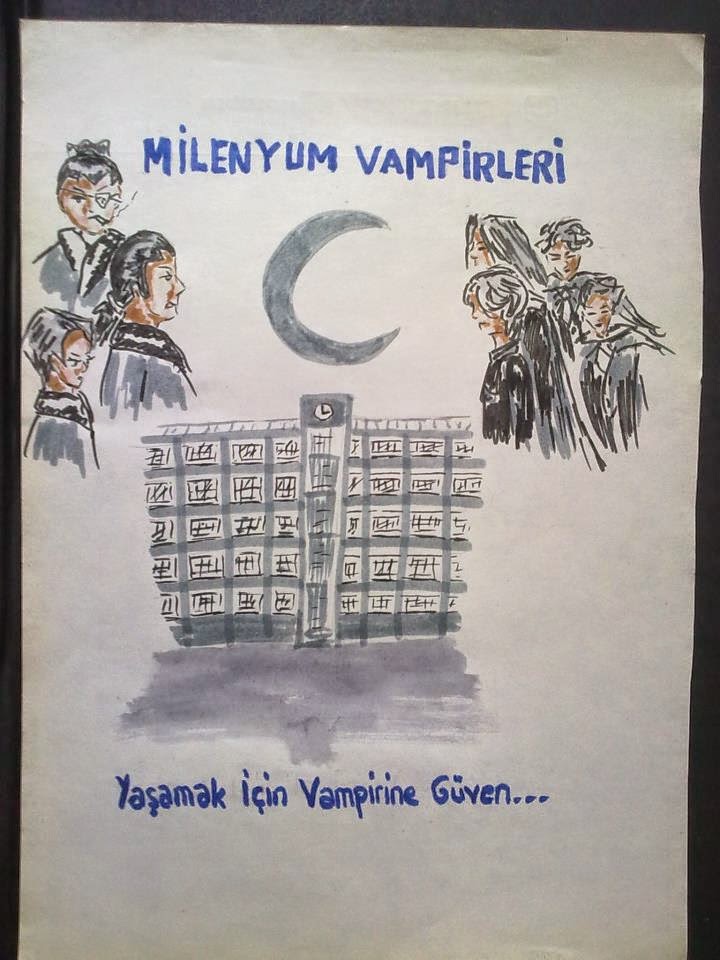 MİLENYUM VAMPİRLERİ
Yaşamak İçin Vampirine Güven...